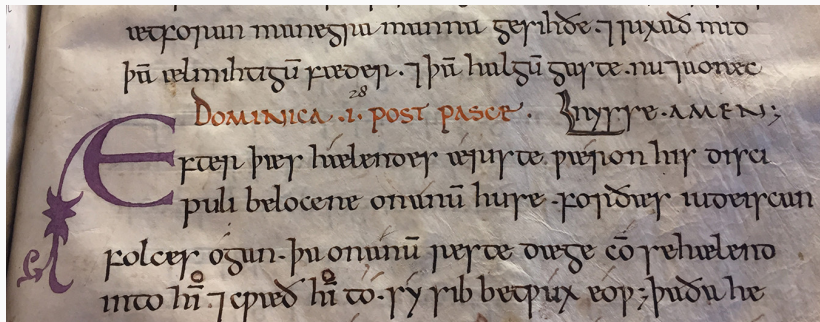 ætforan manegra manna gesihðe. ⁊ rixað mid
þā ælmihtigū fæder. ⁊ þā halgū gaste. nu ⁊ a on ec
28
DOMINICA .I. POST PASCE. nysse. AMEN;
Efter þæs hælendes æriste. ƿæron his disci
puli belocene on anū huse. for ðæs iudeiscan
folces ogan. þa on anū reste dæge cō se hælend
into hī ⁊ cƿæð hī to. sy sib betƿux eoƿ; þa ða he